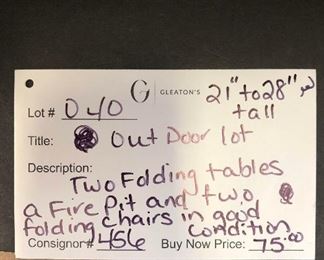 G | GLEATON'S 21" to 28"
tall
Lot # 040
Title: Out Door lot
Description:
Two Folding tables
a Fire Pit and two
folding chairs in good
condition
Consignor# 456 Buy Now Price: 75.00